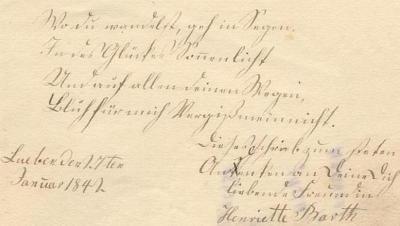 Wo du wandelst, geh in Segen.
In des Glückes Sonnenlicht
Und auf allen deinen Wegen,
Blüh für mich Vergißmeinnicht.
Dieses schrieb zum steten
Lueben den 27ten
Andenken an Deine Dich
Januar 1842
liebende Freundin
Henriette Barth